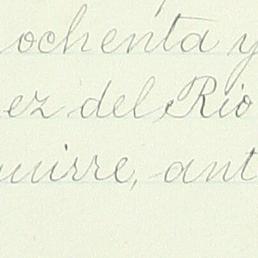 ochenta y
ez del Rio
uirre, ant